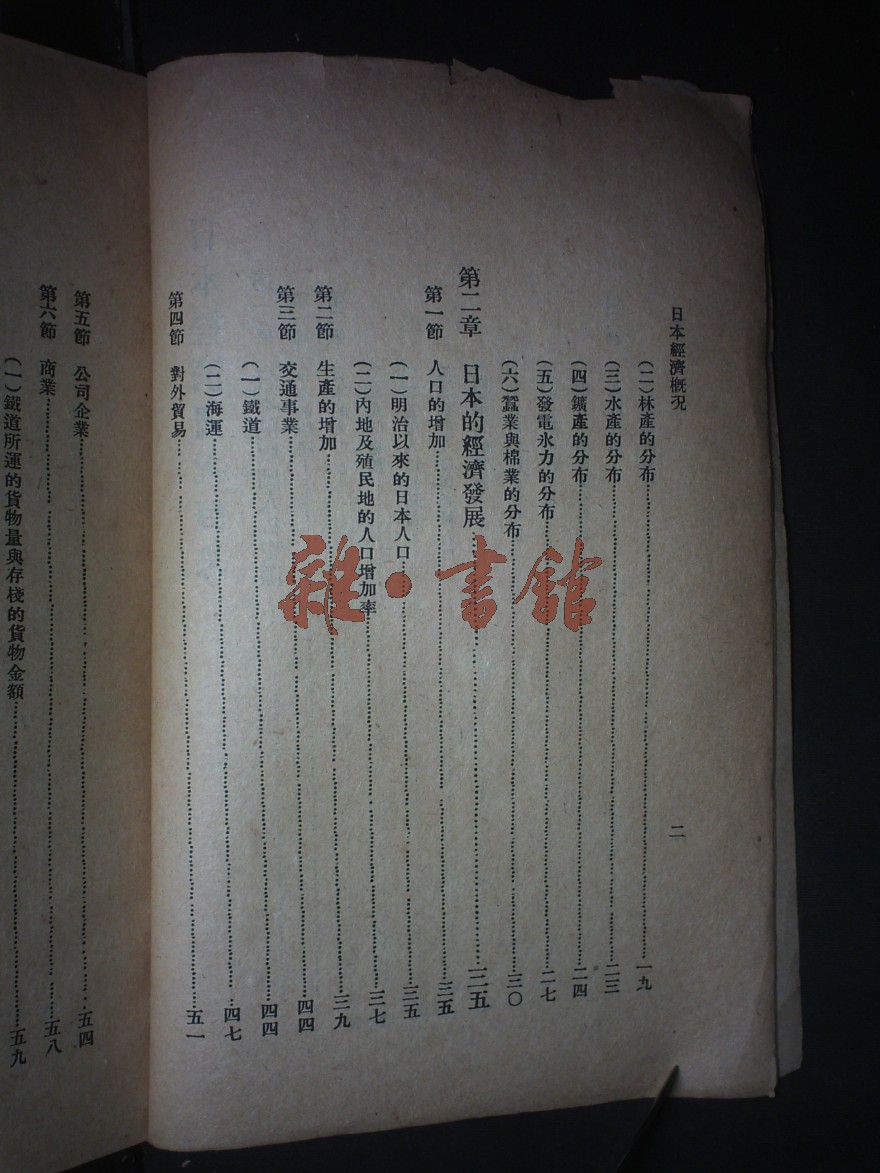 日本經濟概況
二
(二)林產的分布……一九
(三)水產的分布……二三
(四)鑛產的分布……二四
(五)發電水力的分布……二七
(六)蠶業與棉業的分布……三〇
第二章 日本的經濟發展……三五
第一節 人口的增加……三五
(一)明治以來的日本人口……三五
(二)內地及殖民地的人口增加率……三七
第二節 生產的增加……三九
第三節 交通事業……四四
(一)鐵道……四四
(二)海運……四七
第四節 對外貿易……五一
第五節 公司企業……五四
第六節 商業……五八
(一)鐵道所運的貨物量與存棧的貨物金額……五九
雜·書館